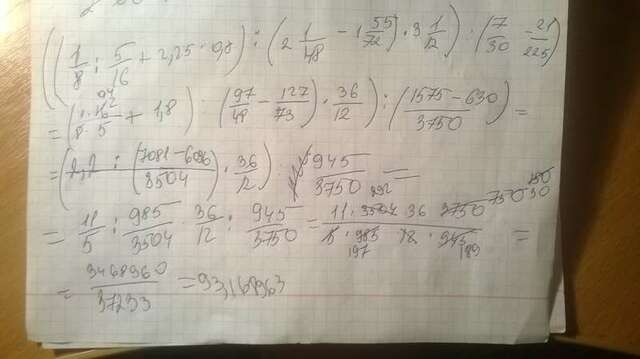 ((1/8 : 5/16 + 2,25 · 0,8) : (2 1/48 - 1 55/72) · 3 1/12) : (7/30 - 21/225)
= (1·16/8·5 + 1,8) : (97/48 - 127/73) · 36/12) : (1575-630/3750) =
= (2,2 : (7081-6096/3504) · 36/12) : 945/3750 =
= 11/5 : 985/3504 · 36/12 : 945/3750 = 11 · 3504 · 36 · 3750 750 / 5 · 985 · 12 · 945 197 189 =
= 3468960/37233 = 93,168963